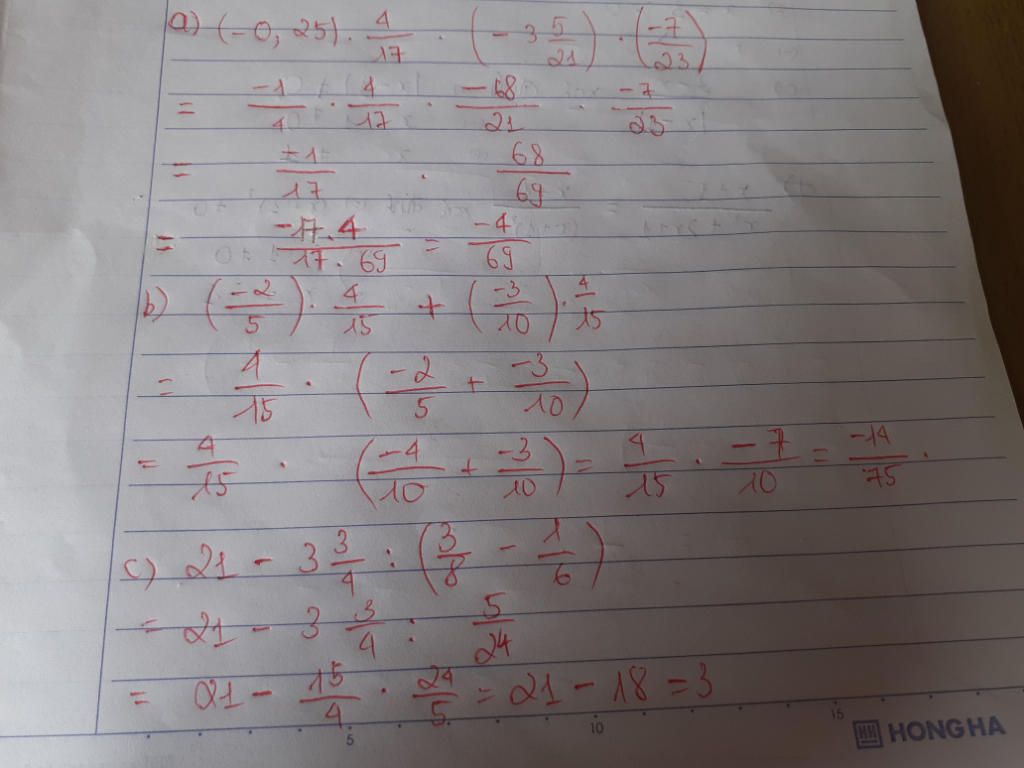 a) (-0,25) . 4/17 . (-3 5/21) . (-7/23)
= -1/4 . 4/17 . -68/21 . -7/23
= -1/17 . 68/69
= -17.4/17.69 = -4/69
b) (-2/5) . 4/15 + (-3/10) . 4/15
= 4/15 . (-2/5 + -3/10)
= 4/15 . (-4/10 + -3/10) = 4/15 . -7/10 = -14/75 .
c) 21 - 3 3/4 : (3/8 - 1/6)
= 21 - 3 3/4 : 5/24
= 21 - 15/4 . 24/5 = 21 - 18 = 3
5 10 15 HH HONG HA